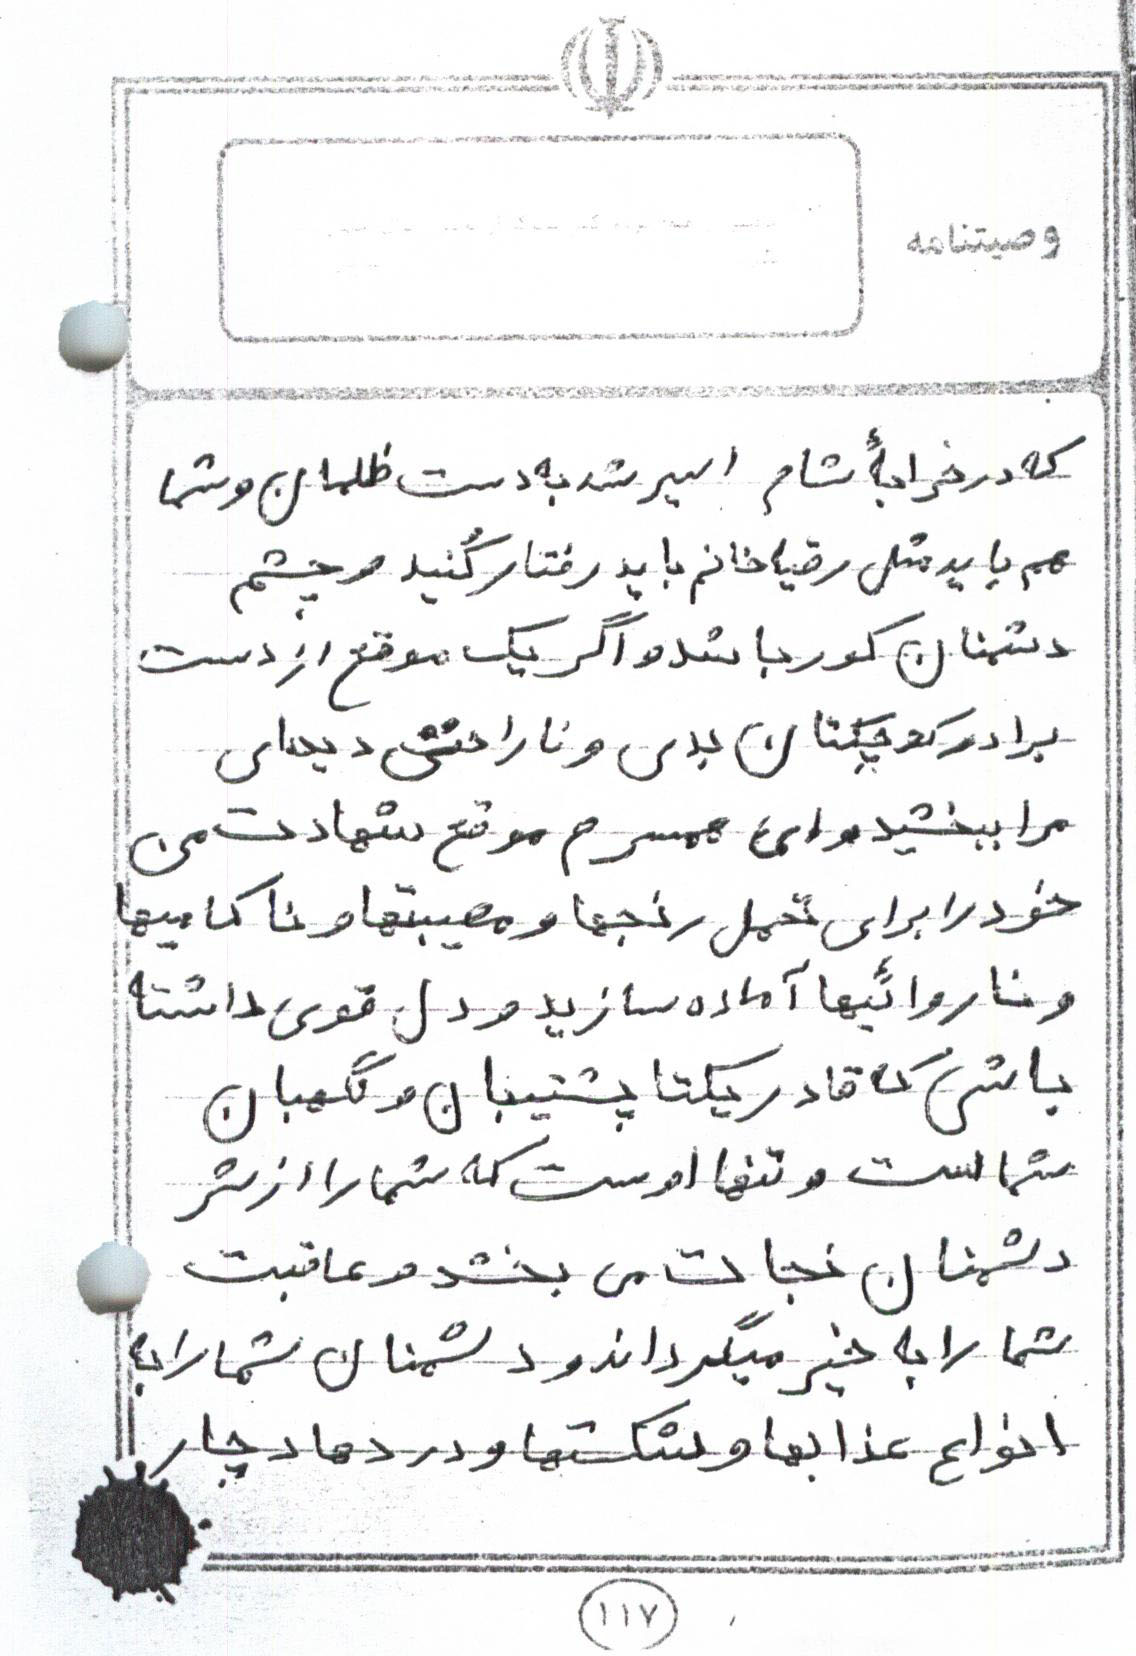 وصیتنامه
که در خرابهٔ شام اسیر شد به دست ظلمان و شما
هم باید مثل رقیه خانم باید رفتار کُنید و چشم
دشمنان کور باشد و اگر یک موقع از دست
برادر کوچکتان بدی و ناراحتی دیدهای
مرا ببخشید و ای همسرم موقع شهادت من
خود را برای تحمل رنجها و مصیبتها و ناکامیها
و ناروائیها آماده سازید و دل قوی داشته
باشی که قادر یکتا پشتیبان و نگهبان
شماست و تنها اوست که شما را از شر
دشمنان نجات می بخشد و عاقبت
شما را به خیر میگرداند و دشمنان شما را به
انواع عذابها و شکستها و دردها دچار
۱۱۷